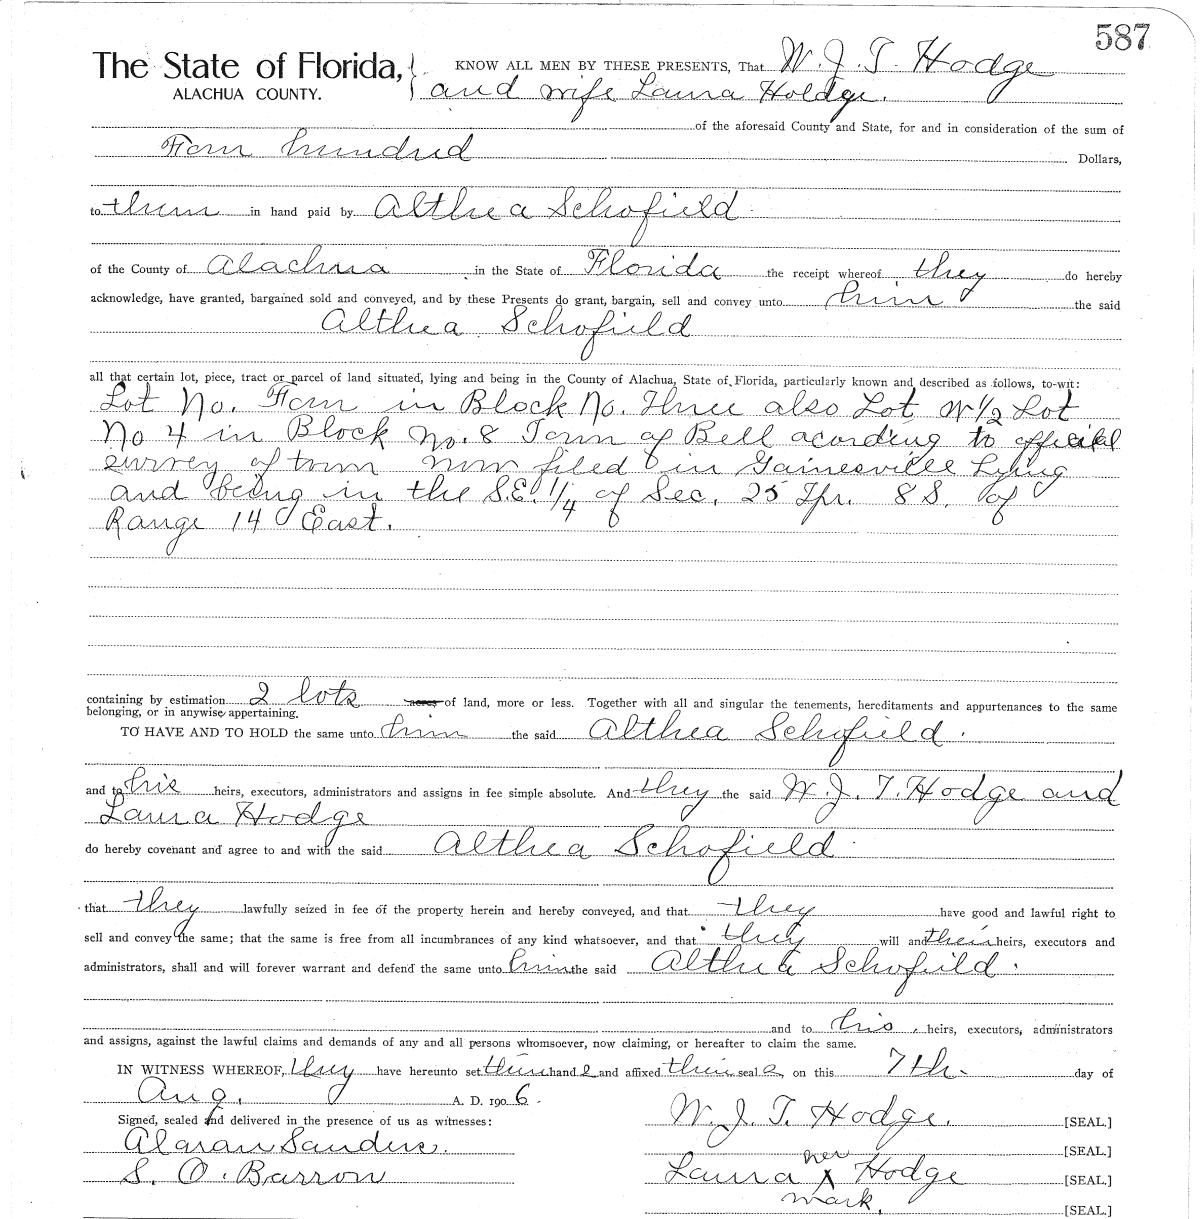 587
The State of Florida,
ALACHUA COUNTY.
KNOW ALL MEN BY THESE PRESENTS, That W. J. T. Hodge
and wife Laura Holdge.
of the aforesaid County and State, for and in consideration of the sum of
Four hundred Dollars,
to them in hand paid by Althea Schofield
of the County of Alachua in the State of Florida the receipt whereof they do hereby
acknowledge, have granted, bargained sold and conveyed, and by these Presents do grant, bargain, sell and convey unto him the said
Althea Schofield
all that certain lot, piece, tract or parcel of land situated, lying and being in the County of Alachua, State of Florida, particularly known and described as follows, to-wit:
Lot No. Four in Block No. Three also Lot W 1/2 Lot
No 4 in Block No. 8 Town of Bell acording to official
survey of town now filed in Gainesville Lying
and being in the S.E. 1/4 of Sec. 25 Tpr. 8 S. of
Range 14 East.
containing by estimation 2 lots acres of land, more or less. Together with all and singular the tenements, hereditaments and appurtenances to the same
belonging, or in anywise appertaining.
TO HAVE AND TO HOLD the same unto him the said Althea Schofield.
and to his heirs, executors, administrators and assigns in fee simple absolute. And they the said W. J. T. Hodge and
Laura Hodge
do hereby covenant and agree to and with the said Althea Schofield
that they lawfully seized in fee of the property herein and hereby conveyed, and that they have good and lawful right to
sell and convey the same; that the same is free from all incumbrances of any kind whatsoever, and that they will and their heirs, executors and
administrators, shall and will forever warrant and defend the same unto him the said Althea Schofield.
and to his, heirs, executors, administrators
and assigns, against the lawful claims and demands of any and all persons whomsoever, now claiming, or hereafter to claim the same.
IN WITNESS WHEREOF, they have hereunto set their hand s and affixed their seal s, on this 7th. day of
Aug. A. D. 190 6.
Signed, sealed and delivered in the presence of us as witnesses:
W. J. T. Hodge. [SEAL.]
Sanders. [SEAL.]
her
S. O. Barron Laura X Hodge [SEAL.]
mark. [SEAL.]